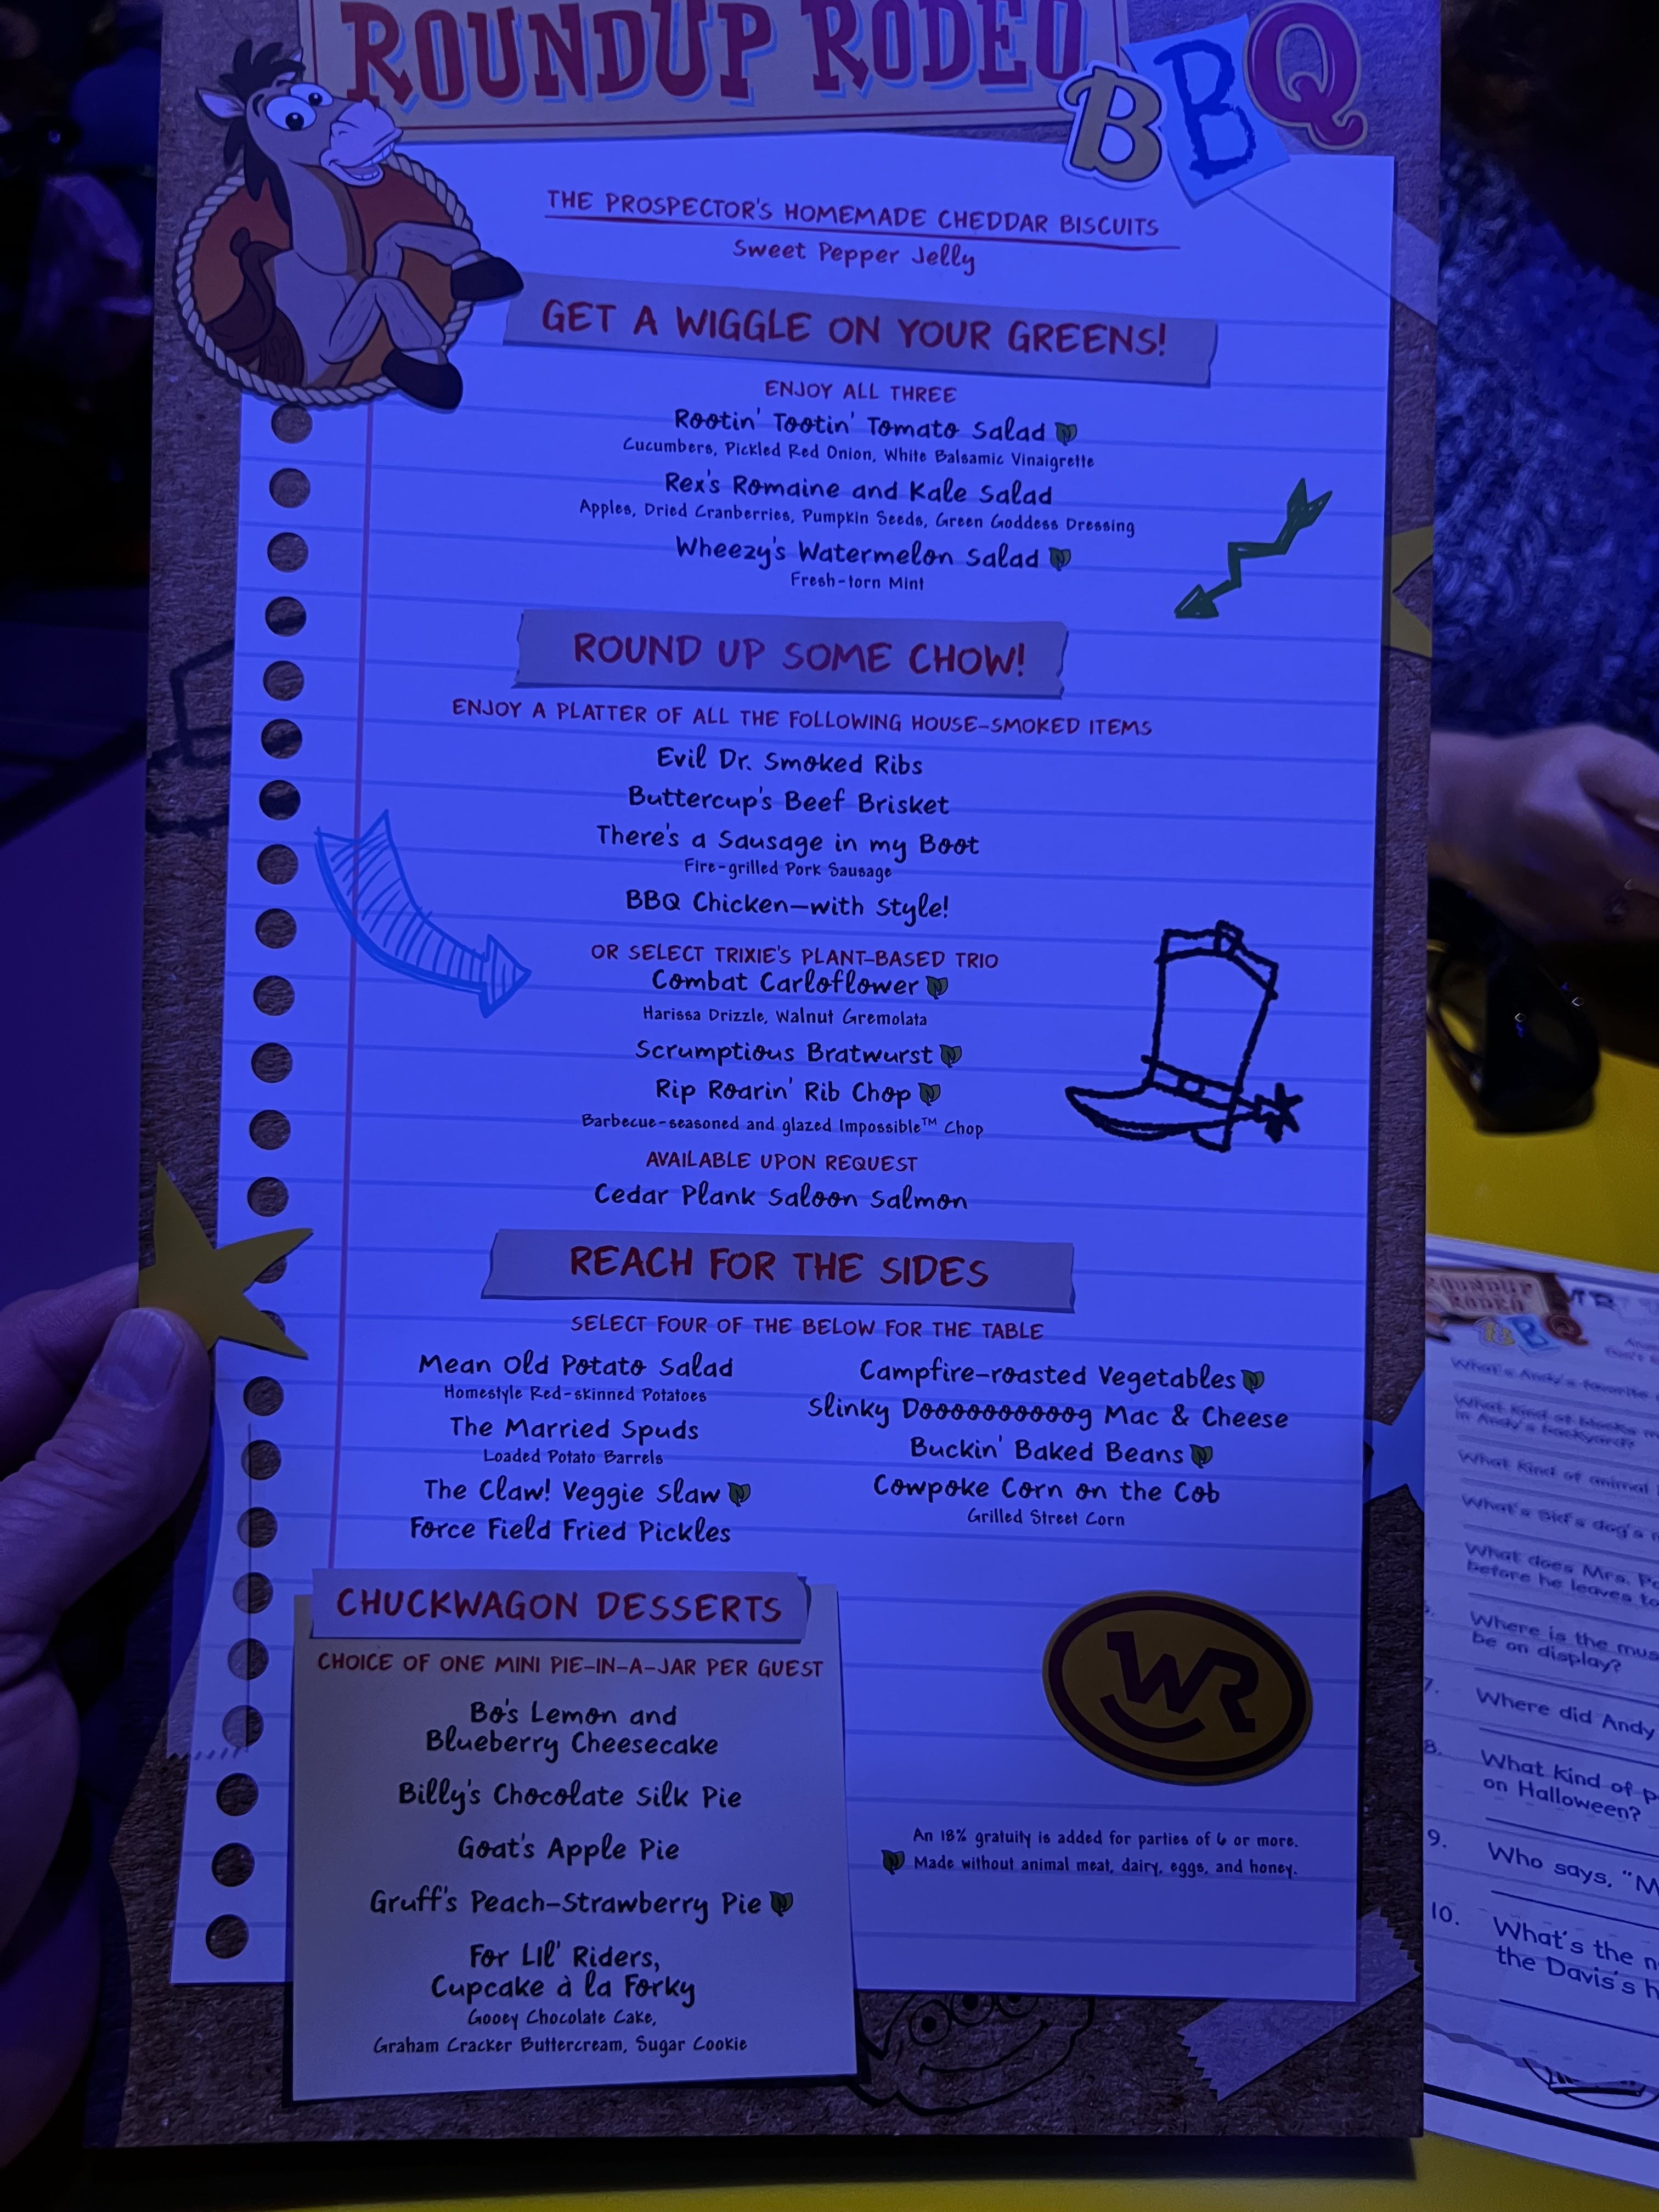 ROUNDUP RODEO
BBQ
THE PROSPECTOR'S HOMEMADE CHEDDAR BISCUITS
Sweet Pepper Jelly
GET A WIGGLE ON YOUR GREENS!
ENJOY ALL THREE
Rootin' Tootin' Tomato Salad
Cucumbers, Pickled Red Onion, White Balsamic Vinaigrette
Rex's Romaine and Kale Salad
Apples, Dried Cranberries, Pumpkin Seeds, Green Goddess Dressing
Wheezy's Watermelon Salad
Fresh-torn Mint
ROUND UP SOME CHOW!
ENJOY A PLATTER OF ALL THE FOLLOWING HOUSE-SMOKED ITEMS
Evil Dr. Smoked Ribs
Buttercup's Beef Brisket
There's a Sausage in my Boot
Fire-grilled Pork Sausage
BBQ Chicken—with Style!
OR SELECT TRIXIE'S PLANT-BASED TRIO
Combat Carloflower
Harissa Drizzle, Walnut Gremolata
Scrumptious Bratwurst
Rip Roarin' Rib Chop
Barbecue-seasoned and glazed Impossible™ Chop
AVAILABLE UPON REQUEST
Cedar Plank Saloon Salmon
REACH FOR THE SIDES
SELECT FOUR OF THE BELOW FOR THE TABLE
Mean Old Potato Salad
Homestyle Red-skinned Potatoes
The Married Spuds
Loaded Potato Barrels
The Claw! Veggie Slaw
Force Field Fried Pickles
Campfire-roasted Vegetables
Slinky Doooooooooog Mac & Cheese
Buckin' Baked Beans
Cowpoke Corn on the Cob
Grilled Street Corn
CHUCKWAGON DESSERTS
CHOICE OF ONE MINI PIE-IN-A-JAR PER GUEST
Bo's Lemon and
Blueberry Cheesecake
Billy's Chocolate Silk Pie
Goat's Apple Pie
Gruff's Peach-Strawberry Pie
For Lil' Riders,
Cupcake à la Forky
Gooey Chocolate Cake,
Graham Cracker Buttercream, Sugar Cookie
WR
An 18% gratuity is added for parties of 6 or more.
Made without animal meat, dairy, eggs, and honey.
ROUNDUP
RODEO
BBQ
What's Andy's favorite
What kind of blocks
in Andy's backyard?
What kind of animal
What's Sid's dog's
What does Mrs.
before he leaves
Where is the
be on display?
7. Where did Andy
8. What kind of
on Halloween?
9. Who says,
10. What's the
the Davis's